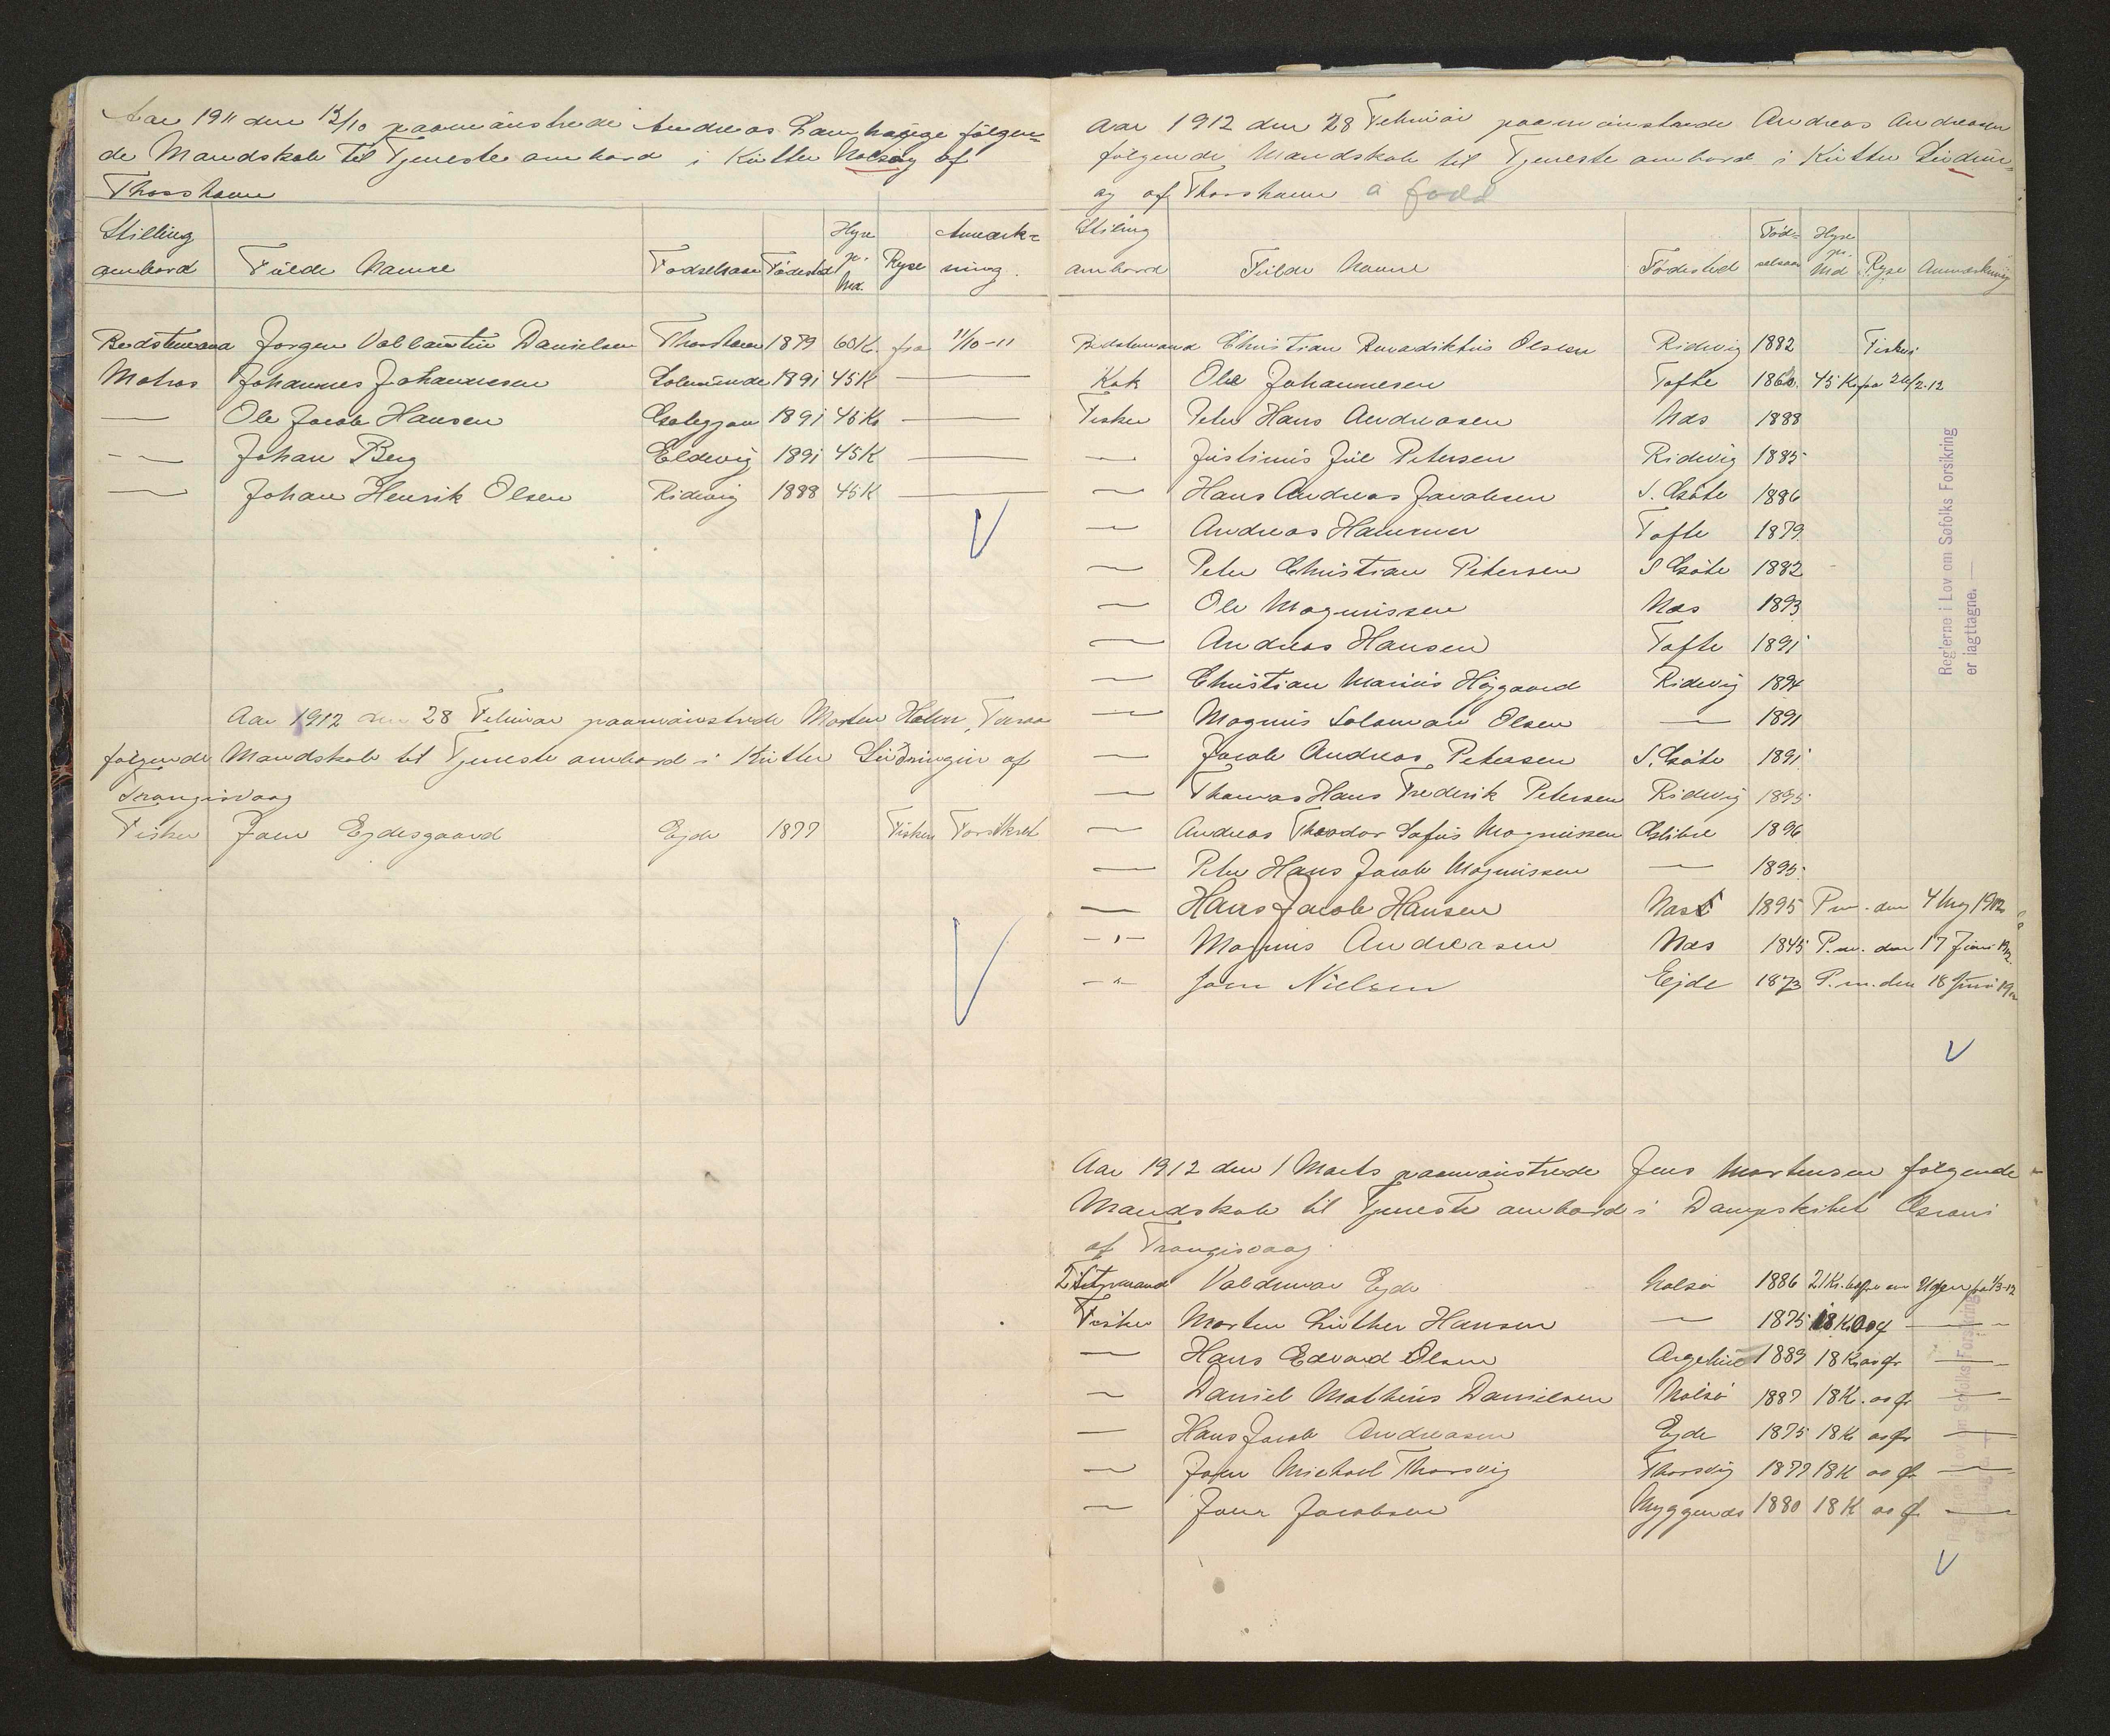 Aar 1911 den 13/10 paamønstrede Andreas Lamhauge følgen=
de Mandskab til Tjeneste ombord i Kutter Nolsøy af
Thorshavn
Stilling ombord Fulde Navne Fødselsaar Fødested Hyre pr. Md. Ryse Anmærk= ning.
Bedstemand Jørgen Vallantin Danielsen Thorshavn 1879 60 K. fra 11/10-11
Matros Johannes Johannesen Solmunde 1891 45 K —
— Ole Jacob Hansen 1891 45 K —
— Johan Berg Eldevig 1891 45 K —
— Johan Henrik Olsen Ridevig 1888 45 K —
Aar 1912 den 28 Februar paamønstrede Morten Holm,
følgende Mandskab til Tjeneste ombord i Kutter Liðringur af
Trangisvaag
Fisker Joen Ejdesgaard Ejde 1877 Fisker Forsikret
Aar 1912 den 28 Februar paamønstrede Andreas Andreasen
følgende Mandskab til Tjeneste ombord i Kutter
af Thorshavn
Stiling ombord Fulde Navne Fødested Fød= selsaar Hyre pr. Md Ryse Anmærkning
Bedstemand Christian Benediktus Olsen Ridevig 1882 Fiskeri
Kok Ole Johannesen Tofte 1860. 45 K fra 26/2-12
Fisker Peter Hans Andreasen Næs 1888
— Justinus Juel Petersen Ridevig 1885
— Hans Andreas Jacobsen S. Gøte 1886
— Andreas Hammer Tofte 1879.
— Peter Christian Petersen S Gøte 1882
— Ole Magnussen Næs 1893
— Andreas Hansen Tofte 1891
— Christian Marius Højgaard Ridevig 1894
— Magnus Soloman Olsen — 1891
— Jacob Andreas Petersen S. Gøte 1891
— Thomas Hans Frederik Petersen Ridevig 1895
— Andreas Theodor Sofus Magnussen Glibre 1896
— Peter Hans Jacob Magnussen — 1895
— Hans Jacob Hansen Næs 1895 P.m. den 4 Maj 1912
-"- Magnus Andreasen Næs 1845 P.m. den 17 Juni 1912.
-"- Joen Nielsen Ejde 1873 P.m. den 18 Juni 1912
Reglerne i Lov om Søfolks Forsikring
er iagttagne. —
Aar 1912 den 1 Marts paamønstrede Jens Mortensen følgende
Mandskab til Tjeneste ombord i Dampskibet
af Trangisvaag
2 Styrmand Valdemar Ejde Nolsø 1886 21 Kr. om Ugen fra 1/3-12
Fisker Morten Luther Hansen — 1875 18 K 00 Ø —
— Hans Edvard Olsen Argehus 1889 18 K 00 Ø —
— Daniel Mathius Danielsen Nolsø 1887 18 K. 00 Ø —
— Hans Jacob Andreasen Ejde 1875 18 K 00 Ø —
— Joen Michael Thorsvig Thorsvig 1877 18 K 00 Ø —
— Joen Jacobsen Myggenæs 1880 18 K 00 Ø —